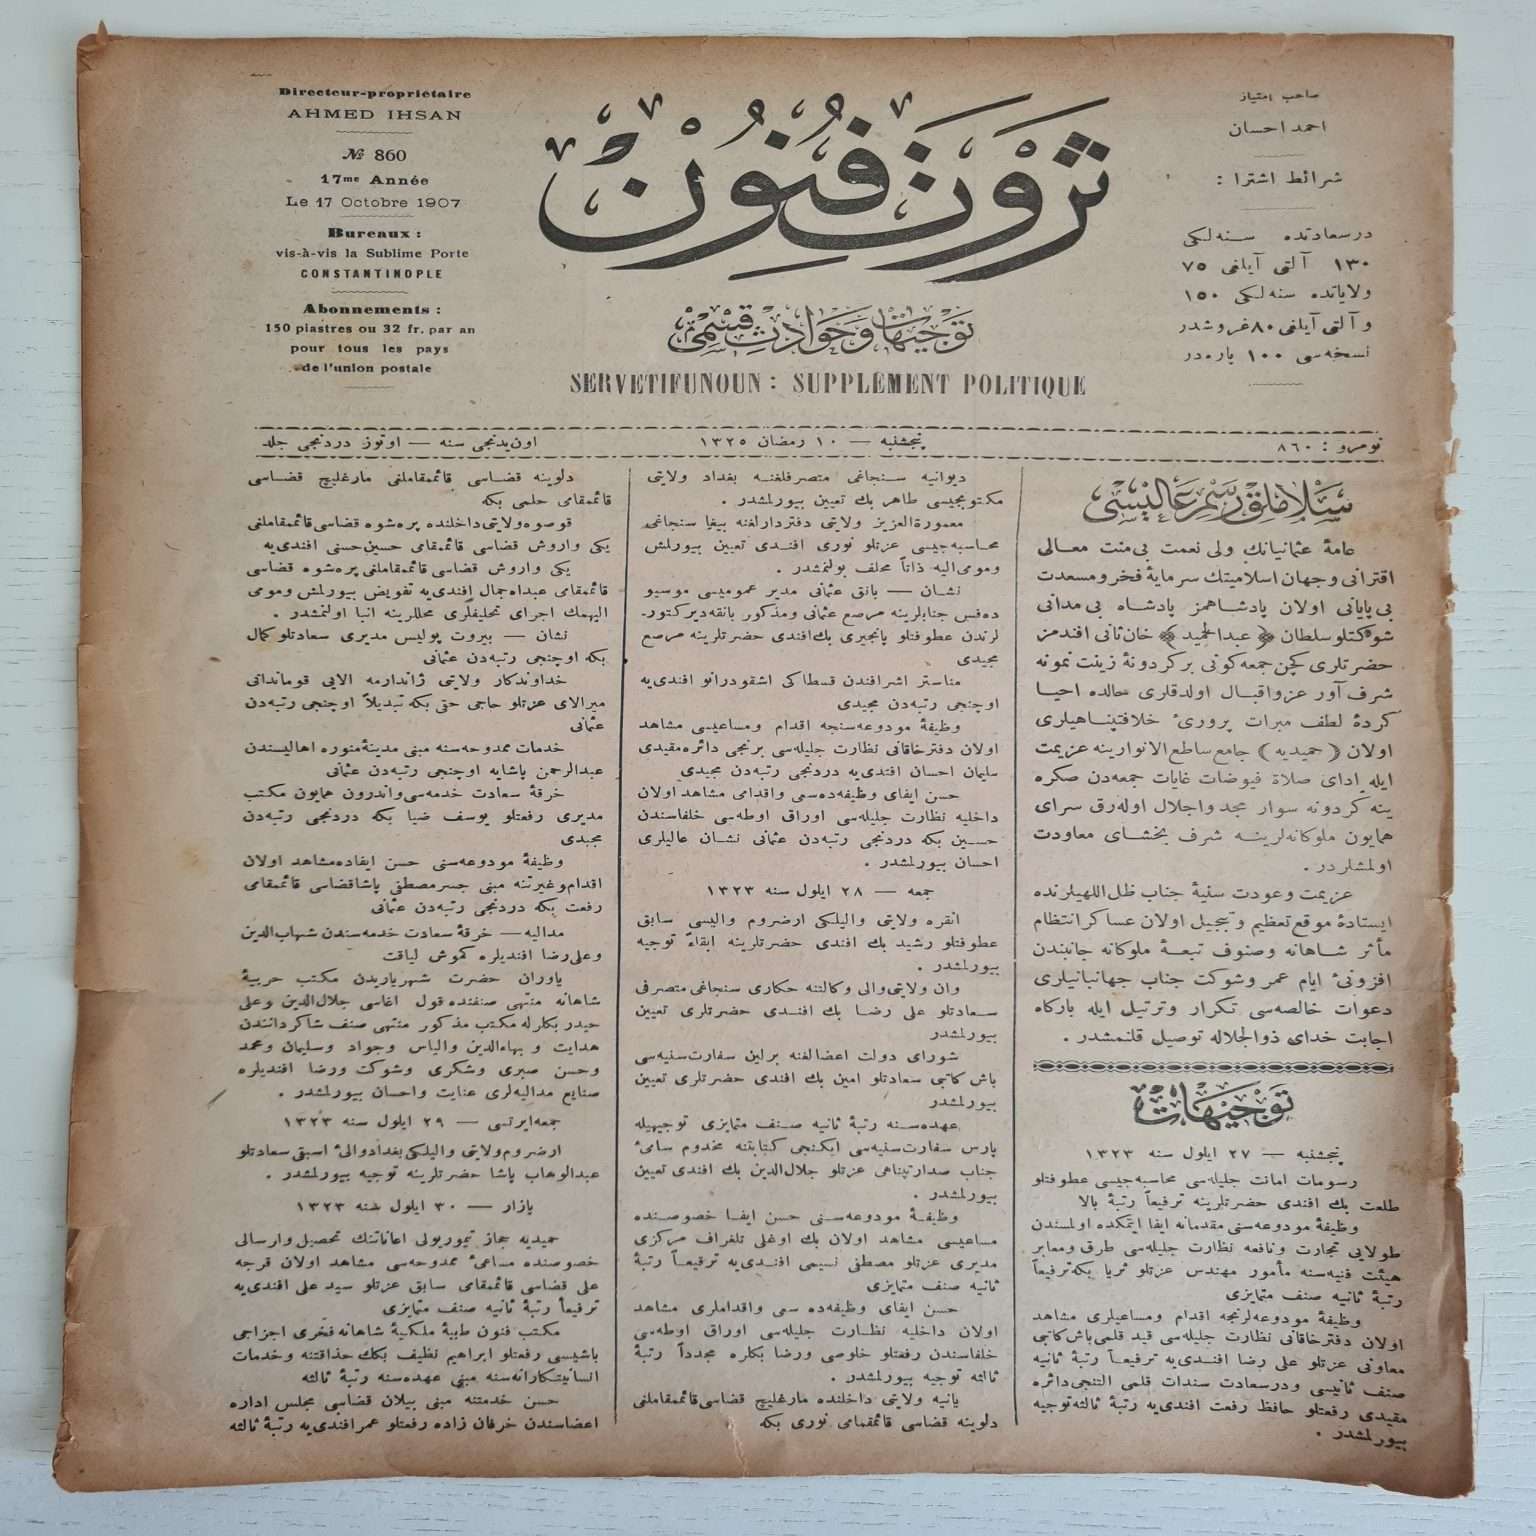 Directeur-propriétaire
AHMED IHSAN
№ 860
17me Année
Le 17 Octobre 1907
Bureaux :
vis-à-vis la Sublime Porte
CONSTANTINOPLE
Abonnements :
150 piastres ou 32 fr. par an
pour tous les pays
de l'union postale
ثروت فنون
توجيهات وحوادث قسمى
SERVETIFUNOUN : SUPPLÉMENT POLITIQUE
صاحب امتياز
احمد احسان
شرائط اشترا :
درسعادتده سنه‌لكى
١٣٠ آلتى آيلغى ٧٥
ولاياتده سنه‌لكى ١٥٠
و آلتى آيلغى ٨٠ غروشدر
نسخه‌سى ١٠٠ پاره‌در
نومرو : ٨٦٠
پنجشنبه — ١٠ رمضان ١٣٢٥
اون يدنجى سنه — اوتوز دردنجى جلد
سلاملق رسم عاليسى
عامهٔ عثمانيانك ولى نعمت بى‌منت معالى
اقترانى وجهان اسلاميتك سرمايهٔ فخر ومسعدت
بى پايانى اولان پادشاهمز پادشاه بى‌مدانى
شوكتلو سلطان ﴿ عبدالحميد ﴾ خان ثانى افندمز
حضرتلرى كچن جمعه كونى بر كردونهٔ زينت نمونه
شرف آور عز واقبال اولدقلرى حالده احيا
كردهٔ لطف مبرات پرورىٔ خلافتپناهيلرى
اولان ﴿ حميديه ﴾ جامع ساطع الانوارينه عزيمت
ايله اداى صلاة فيوضات غايات جمعه‌دن صكره
ينه كردونه سوار مجد واجلال اوله‌رق سراى
همايون ملوكانه‌لرينه شرف بخشاى معاودت
اولمشلردر .
عزيمت وعودت سنيهٔ جناب ظل اللهيلرنده
ايستادهٔ موقع تعظيم وتبجيل اولان عساكر انتظام
مأثر شاهانه وصنوف تبعهٔ ملوكانه جانبندن
افزونىٔ ايام عمر وشوكت جناب جهانبانيلرى
دعوات خالصه‌سى تكرار وترتيل ايله باركاه
اجابت خداى ذوالجلاله توصيل قلنمشدر .
توجيهات
پنجشنبه — ٢٧ ايلول سنه ١٣٢٣
رسومات امانت جليله‌سى محاسبه‌جيسى عطوفتلو
طلعت بك افندى حضرتلرينه ترفيعاً رتبهٔ بالا
وظيفهٔ مودوعه‌سنى مقدمانه ايفا ايتمكده اولمسندن
طولايى تجارت ونافعه نظارت جليله‌سى طرق ومعابر
هيئت فنيه‌سنه مأمور مهندس عزتلو ثريا بكه ترفيعاً
رتبهٔ ثانيه صنف متمايزى
وظيفهٔ مودوعه‌لرنجه اقدام ومساعيلرى مشاهد
اولان دفترخاقانى نظارت جليله‌سى قيد قلمى باش كاتبى
معاونى عزتلو على رضا افندى‌يه ترفيعاً رتبهٔ ثانيه
صنف ثانيسى ودرسعادت سندات قلمى التنجى دائره
مقيدى رفعتلو حافظ رفعت افندى‌يه رتبهٔ ثالثه توجيه
بيورلمشدر .
ديوانيه سنجاغى متصرفلغنه بغداد ولايتى
مكتوبجيسى طاهر بك تعيين بيورلمشدر .
معمورةالعزيز ولايتى دفتردارلغنه بيغا سنجاغى
محاسبه‌جيسى عزتلو نورى افندى تعيين بيورلمش
ومومى‌اليه ذاتاً محلف بولنمشدر .
نشان — بانق عثمانى مدير عموميسى موسيو
ده‌فس جنابلرينه مرصع عثمانى ومذكور بانقه ديركتور
لرندن عطوفتلو پانجيرى بك افندى حضرتلرينه مرصع
مجيدى
مناستر اشرافندن قسطاكى اشقودرانو افندى‌يه
اوچنجى رتبه‌دن مجيدى
وظيفهٔ مودوعه‌سنجه اقدام ومساعيسى مشاهد
اولان دفترخاقانى نظارت جليله‌سى برنجى دائره مقيدى
سليمان احسان افندى‌يه دردنجى رتبه‌دن مجيدى
حسن ايفاى وظيفه‌ده سعى واقدامى مشاهد اولان
داخليه نظارت جليله‌سى اوراق اوطه‌سى خلفاسندن
حسين بكه دردنجى رتبه‌دن عثمانى نشان عاليلرى
احسان بيورلمشدر .
جمعه — ٢٨ ايلول سنه ١٣٢٣
انقره ولايتى واليلكى ارضروم واليسى سابق
عطوفتلو رشيد بك افندى حضرتلرينه ابقاءً توجيه
بيورلمشدر .
وان ولايتى والى وكالتنه حكارى سنجاغى متصرفى
سعادتلو على رضا بك افندى حضرتلرى تعيين
بيورلمشدر
شوراى دولت اعضالغنه برلين سفارت سنيه‌سى
باش كاتبى سعادتلو امين بك افندى حضرتلرى تعيين
بيورلمشدر
عهده‌سنه رتبهٔ ثانيه صنف متمايزى توجيهيله
پارس سفارت سنيه‌سى ايكنجى كتابتنه مخدوم سامىٔ
جناب صدارتپناهى عزتلو جلال‌الدين بك افندى تعيين
بيورلمشدر .
وظيفهٔ مودوعه‌سنى حسن ايفا خصوصنده
مساعيسى مشاهد اولان بك اوغلى تلغراف مركزى
مديرى عزتلو مصطفى نسيمى افندى‌يه ترفيعاً رتبهٔ
ثانيه صنف متمايزى
حسن ايفاى وظيفه‌ده سعى واقداملرى مشاهد
اولان داخليه نظارت جليله‌سى اوراق اوطه‌سى
خلفاسندن رفعتلو خلوصى ورضا بكلره مجدداً رتبهٔ
ثالثه توجيه بيورلمشدر .
يانيه ولايتى داخلنده مارغليچ قضاسى قائممقاملغنى
دلوينه قضاسى قائممقامى نورى بكه
دلوينه قضاسى قائممقاملغنى مارغليچ قضاسى
قائممقامى حلمى بكه
قوصوه ولايتى داخلنده پره‌شوه قضاسى قائممقاملغنى
يكى واروش قضاسى قائممقامى حسين حسنى افندى‌يه
يكى واروش قضاسى قائممقاملغنى پره‌شوه قضاسى
قائممقامى عبداه‌جمال افندى‌يه تفويض بيورلمش ومومى
اليهمك اجراى تحليفلرى محللرينه انبا اولنمشدر .
نشان — بيروت پوليس مديرى سعادتلو كمال
بكه اوچنجى رتبه‌دن عثمانى
خداوندكار ولايتى ژاندارمه الايى قوماندانى
ميرالاى عزتلو حاجى حقى بكه تبديلاً اوچنجى رتبه‌دن
عثمانى
خدمات ممدوحه‌سنه مبنى مدينهٔ منوره اهاليسندن
عبدالرحمن پاشايه اوچنجى رتبه‌دن عثمانى
خرقهٔ سعادت خدمه‌سى واندرون همايون مكتب
مديرى رفعتلو يوسف ضيا بكه دردنجى رتبه‌دن
مجيدى
وظيفهٔ مودوعه‌سنى حسن ايفاده مشاهد اولان
اقدام وغيرتنه مبنى جسر مصطفى پاشا قضاسى قائممقامى
رفعت بكه دردنجى رتبه‌دن عثمانى
مداليه — خرقهٔ سعادت خدمه‌سندن شهاب‌الدين
وعلى رضا افنديلره كموش لياقت
ياوران حضرت شهرياريدن مكتب حربيهٔ
شاهانه منتهى صنفنده قول اغاسى جلال‌الدين وعلى
حيدر بكلرله مكتب مذكور منتهى صنف شاكرداننندن
هدايت و بهاءالدين والياس وجواد وسليمان ومحمد
وحسن صبرى وشكرى وشوكت ورضا افنديلره
صنايع مداليه‌لرى عنايت واحسان بيورلمشدر .
جمعه‌ايرتسى — ٢٩ ايلول سنه ١٣٢٣
ارضروم ولايتى واليلكى بغداد والىٔ اسبقى سعادتلو
عبدالوهاب پاشا حضرتلرينه توجيه بيورلمشدر .
پازار — ٣٠ ايلول سنه ١٣٢٣
حميديه حجاز تيموريولى اعاناتنك تحصيل وارسالى
خصوصنده مساعىٔ ممدوحه‌سى مشاهد اولان قرجه
على قضاسى قائممقامى سابق عزتلو سيد على افندى‌يه
ترفيعاً رتبهٔ ثانيه صنف متمايزى
مكتب فنون طبيهٔ ملكيهٔ شاهانه فخرى اجزاجى
باشيسى رفعتلو ابراهيم نظيف بكك حذاقتنه وخدمات
انسانيتكارانه‌سنه مبنى عهده‌سنه رتبهٔ ثالثه
حسن خدمتنه مبنى بيلان قضاسى مجلس اداره
اعضاسندن خرفان زاده رفعتلو عمر افندى‌يه رتبهٔ ثالثه